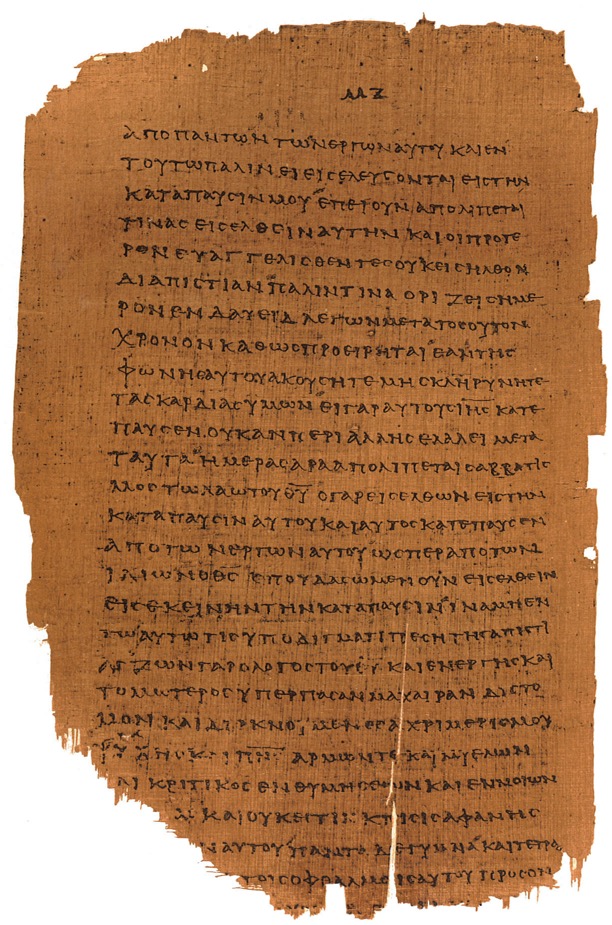 ΑΠΟ ΠΑΝΤΩΝ ΤΩΝ ΕΡΓΩΝ ΑΥΤΟΥ ΚΑΙ ΕΝ
ΤΟΥΤΩ ΠΑΛΙΝ ΕΙ ΕΙΣΕΛΕΥΣΟΝΤΑΙ ΕΙΣ ΤΗΝ
ΚΑΤΑΠΑΥΣΙΝ ΜΟΥ ΕΠΕΙ ΟΥΝ ΑΠΟΛΙΠΕΤΑΙ
ΤΙΝΑΣ ΕΙΣΕΛΘΕΙΝ ΑΥΤΗΝ ΚΑΙ ΟΙ ΠΡΟΤΕ
ΡΟΝ ΕΥΑΓΓΕΛΙΣΘΕΝΤΕΣ ΟΥΚ ΕΙΣΗΛΘΟΝ
ΔΙ ΑΠΙΣΤΙΑΝ ΠΑΛΙΝ ΤΙΝΑ ΟΡΙΖΕΙ ΣΗΜΕ
ΡΟΝ ΕΝ ΔΑΥΕΙΔ ΛΕΓΩΝ ΜΕΤΑ ΤΟΣΟΥΤΟΝ
ΧΡΟΝΟΝ ΚΑΘΩΣ ΠΡΟΕΙΡΗΤΑΙ ΕΑΝ ΤΗΣ
ΦΩΝΗΣ ΑΥΤΟΥ ΑΚΟΥΣΗΤΕ ΜΗ ΣΚΛΗΡΥΝΗΤΕ
ΤΑΣ ΚΑΡΔΙΑΣ ΥΜΩΝ ΕΙ ΓΑΡ ΑΥΤΟΥΣ ΙΗΣ ΚΑΤΕ
ΠΑΥΣΕΝ ΟΥΚ ΑΝ ΠΕΡΙ ΑΛΛΗΣ ΕΛΑΛΕΙ ΜΕΤΑ
ΤΑΥΤΑ ΗΜΕΡΑΣ ΑΡΑ ΑΠΟΛΙΠΕΤΑΙ ΣΑΒΒΑΤΙΣ
ΜΟΣ ΤΩ ΛΑΩ ΤΟΥ ΘΥ Ο ΓΑΡ ΕΙΣΕΛΘΩΝ ΕΙΣ ΤΗΝ
ΚΑΤΑΠΑΥΣΙΝ ΑΥΤΟΥ ΚΑΙ ΑΥΤΟΣ ΚΑΤΕΠΑΥΣΕΝ
ΑΠΟ ΤΩΝ ΕΡΓΩΝ ΑΥΤΟΥ ΩΣΠΕΡ ΑΠΟ ΤΩΝ
ΙΔΙΩΝ Ο ΘΣ ΣΠΟΥΔΑΣΩΜΕΝ ΟΥΝ ΕΙΣΕΛΘΕΙΝ
ΕΙΣ ΕΚΕΙΝΗΝ ΤΗΝ ΚΑΤΑΠΑΥΣΙΝ ΙΝΑ ΜΗ ΕΝ
ΤΩ ΑΥΤΩ ΤΙΣ ΥΠΟΔΙΓΜΑΤΙ ΠΕΣΗ ΤΗΣ ΑΠΙΣΤΙ
ΑΣ ΖΩΝ ΓΑΡ Ο ΛΟΓΟΣ ΤΟΥ ΘΥ ΚΑΙ ΕΝΕΡΓΗΣ ΚΑΙ
ΤΟΜΩΤΕΡΟΣ ΥΠΕΡ ΠΑΣΑΝ ΜΑΧΑΙΡΑΝ ΔΙΣΤΟ
ΜΟΝ ΚΑΙ ΔΙΙΚΝΟΥΜΕΝΟΣ ΑΧΡΙ ΜΕΡΙΣΜΟΥ
ΨΥΧΗΣ Κ ΠΝΣ ΑΡΜΩΝ ΤΕ ΚΑΙ ΜΥΕΛΩΝ
ΑΙ ΚΡΙΤΙΚΟΣ ΕΝΘΥΜΗΣΕΩΝ ΚΑΙ ΕΝΝΟΙΩΝ
ΚΑΙ ΟΥΚ ΕΣΤΙΝ ΚΤΙΣΙΣ ΑΦΑΝΗΣ
Ν ΑΥΤΟΥ ΠΑΝΤΑ ΔΕ ΓΥΜΝΑ ΚΑΙ ΤΕΤΡΑ
ΤΟΙΣ ΟΦΘΑΛΜΟΙΣ ΑΥΤΟΥ ΠΡΟΣ ΟΝ